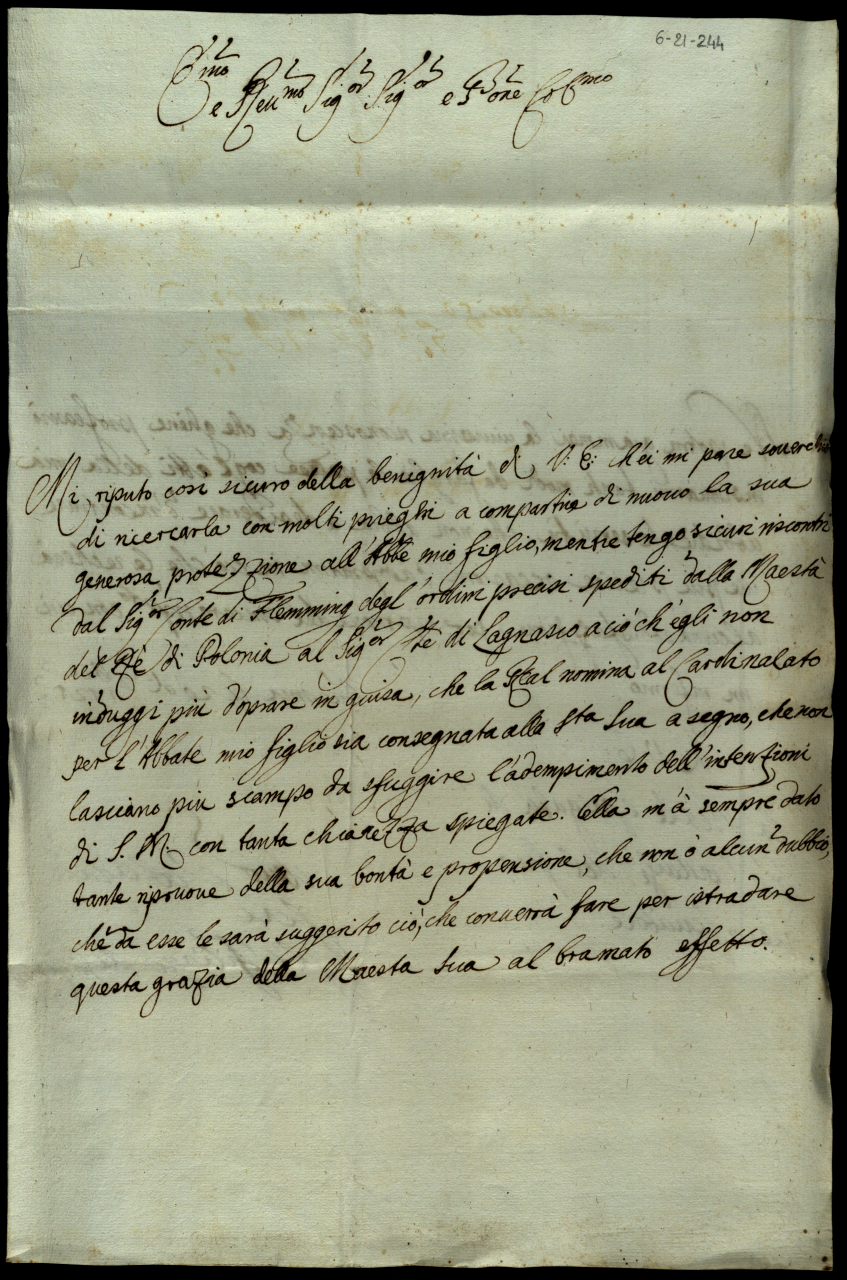 6-21-244
E.mo e Reu.mo Sig.or Sig.or e P.rone Col.mo
Mi riputo cosi sicuro della benignità di V: E: ch'ei mi pare souerchio
di ricercarla con molti prieghi a compartire di nuouo la sua
generosa protezzione all'Abbe mio figlio, mentre tengo sicuri riscontri
dal Sig.or Conte di Flemming degl'ordini precisi spediti dalla Maestà
del Rè di Polonia al Sig.or Cte di Lagnasco aciò ch'egli non
induggi più d'oprare in guisa, che la Real nomina al Cardinalato
per l'Abbate mio figlio sia consegnata alla Sta Sua a segno, che non
lasciano più scampo da sfuggire l'adempimento dell'intenzioni
di S. M. con tanta chiarezza spiegate. Ella m'à sempre dato
tante riprouoe della sua bontà e propensione, che non ò alcun dubbio,
che da esse le sarà suggerito ciò, che conuerrà fare per istradare
questa grazia della Maesta Sua al bramato effetto.